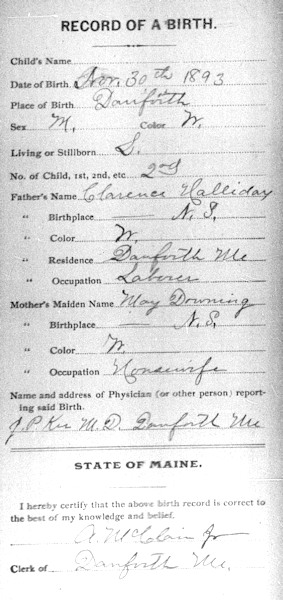 RECORD OF A BIRTH.
Child's Name
Date of Birth Nov. 30th 1893
Place of Birth Danforth
Sex M. Color W.
Living or Stillborn S.
No. of Child, 1st, 2nd, etc. 2nd
Father's Name Clarence Halliday
" Birthplace — N. S.
" Color W.
" Residence Danforth Me
" Occupation Laborer
Mother's Maiden Name May Downing
" Birthplace — N. S.
" Color W.
" Occupation Housewife
Name and address of Physician (or other person) report-
ing said Birth.
J. P. M. D. Danforth Me
STATE OF MAINE.
I hereby certify that the above birth record is correct to
the best of my knowledge and belief.
A. McClain Jr
Clerk of Danforth Me.